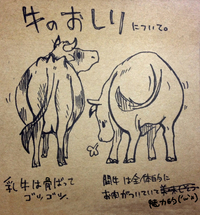 牛のおしりについて。
乳牛は骨ばって
ゴツゴツ。
闘牛は全体的に
お肉がついていて美味しそう
魅力的